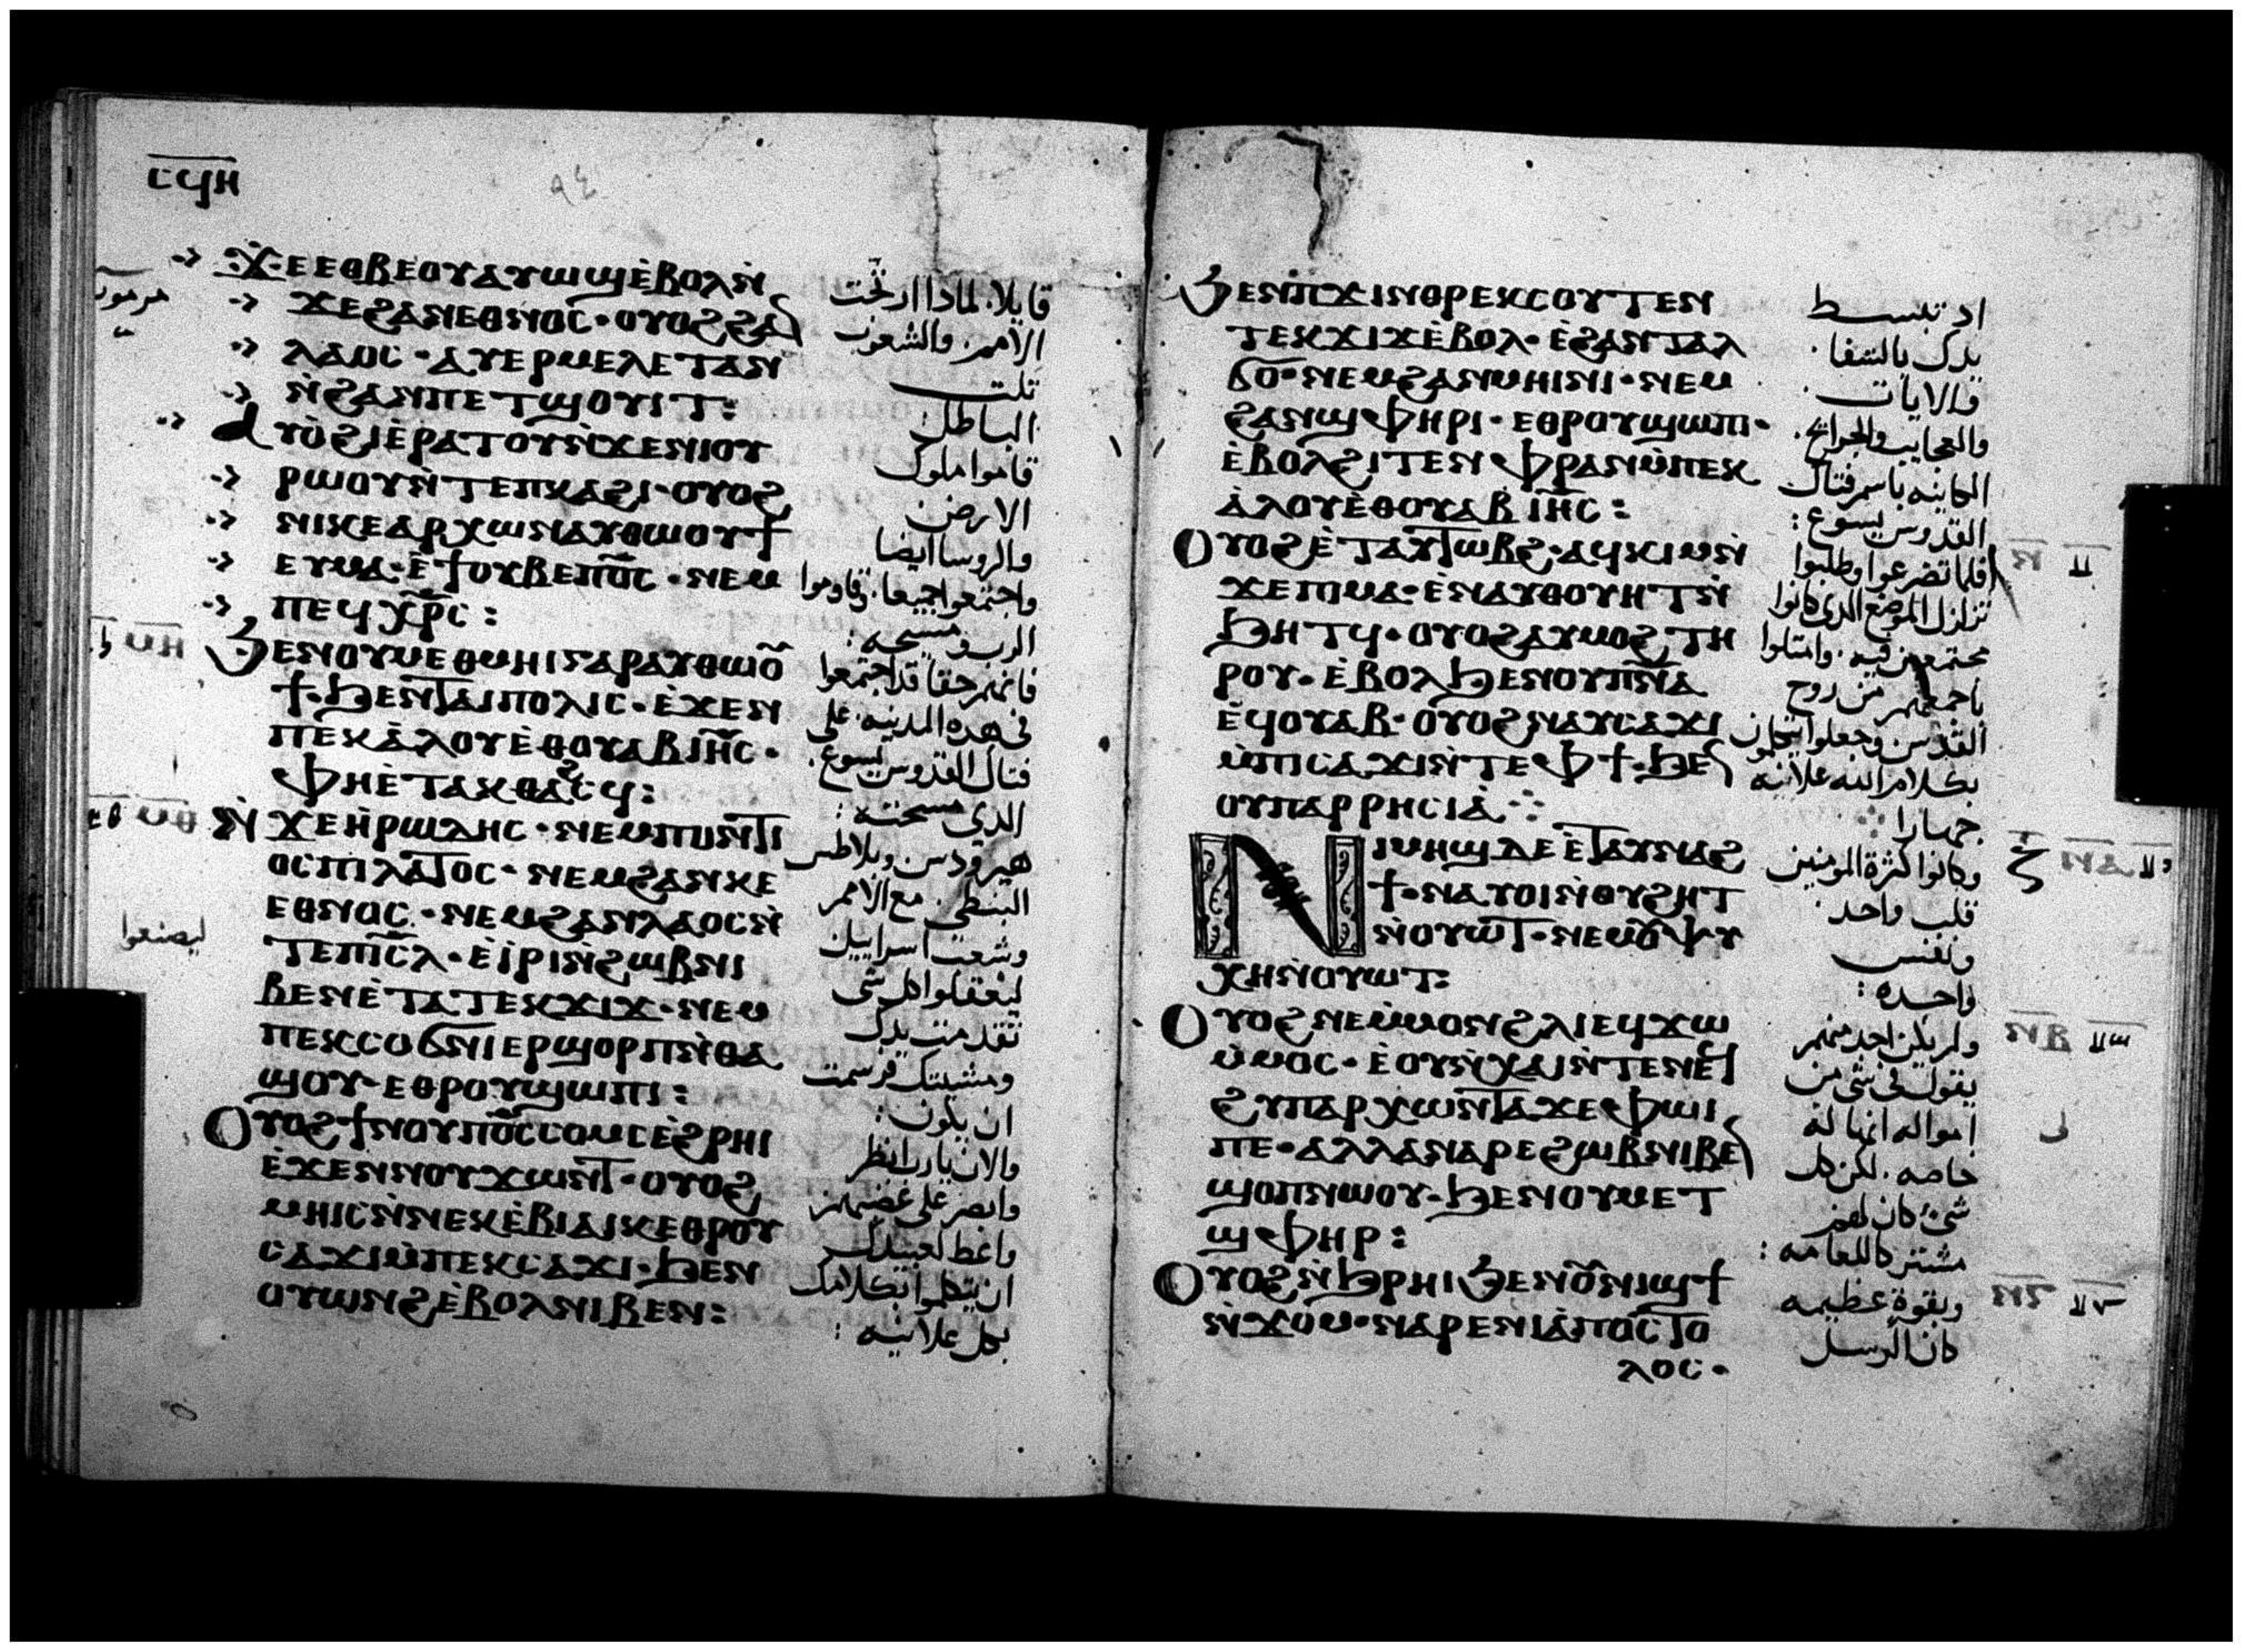 ⲥϥⲏ
٩٤
ϫⲉ ⲉⲑⲃⲉⲟⲩ ⲁⲩⲱϣ ⲉ̀ⲃⲟⲗ ⲛ̀
ϫⲉ ϩⲁⲛⲉⲑⲛⲟⲥ· ⲟⲩⲟϩ ϩⲁ
ⲗⲁⲟⲥ· ⲁⲩⲉⲣⲙⲉⲗⲉⲧⲁⲛ
ⲛ̀ϩⲁⲛⲡⲉⲧϣⲟⲩⲓⲧ:
ⲁⲩⲟ̀ϩⲓ ⲉ̀ⲣⲁⲧⲟⲩ ⲛ̀ϫⲉ ⲛⲓⲟⲩ
ⲣⲱⲟⲩ ⲛ̀ⲧⲉ ⲡⲕⲁϩⲓ· ⲟⲩⲟϩ
ⲛⲓⲕⲉⲁⲣⲭⲱⲛ ⲁⲩⲑⲱⲟⲩϯ
ⲉⲩⲙⲁ· ⲉ̀ϯⲟⲩⲃⲉ ⲡⲟ̅ⲥ̅· ⲛⲉⲙ
ⲡⲉϥⲭ̅ⲣ̅ⲥ̅:
ϧⲉⲛ ⲟⲩⲙⲉⲑⲙⲏⲓ ⲅⲁⲣ ⲁⲩⲑⲱⲟ̅
ϯ· ϧⲉⲛ ⲧⲁⲓⲡⲟⲗⲓⲥ· ⲉ̀ϫⲉⲛ
ⲡⲉⲕⲁ̀ⲗⲟⲩ ⲉ̀ⲑⲟⲩⲁⲃ ⲓⲏ̅ⲥ̅·
ⲫⲏ ⲉ̀ⲧⲁⲕⲑⲁϩⲥϥ:
ⲛ̀ϫⲉ ⲏ̀ⲣⲱⲇⲏⲥ· ⲛⲉⲙ ⲡⲟⲛⲧⲓ
ⲟⲥ ⲡⲓⲗⲁⲧⲟⲥ· ⲛⲉⲙ ϩⲁⲛⲕⲉ
ⲉⲑⲛⲟⲥ· ⲛⲉⲙ ϩⲁⲛⲗⲁⲟⲥ ⲛ̀
ⲧⲉ ⲡⲓⲥ̅ⲗ· ⲉ̀ⲓ̀ⲣⲓ ⲛ̀ϩⲱⲃ ⲛⲓ
ⲃⲉⲛ ⲉ̀ⲧⲁ ⲧⲉⲕϫⲓϫ· ⲛⲉⲙ
ⲡⲉⲕⲥⲟϭⲛⲓ ⲉⲣϣⲟⲣⲡ ⲛ̀ⲑⲁ
ϣⲟⲩ· ⲉⲑⲣⲟⲩϣⲱⲡⲓ:
ⲟⲩⲟϩ ϯⲛⲟⲩ ⲡⲟ̅ⲥ̅ ⲥⲟⲙⲥ ⲉ̀ϩⲣⲏⲓ
ⲉ̀ϫⲉⲛ ⲛⲟⲩϫⲱⲛⲧ· ⲟⲩⲟϩ
ⲙⲏⲓⲥ ⲛ̀ⲛⲉⲕⲉ̀ⲃⲓⲁⲓⲕ ⲉⲑⲣⲟⲩ
ⲥⲁϫⲓ ⲙ̀ⲡⲉⲕⲥⲁϫⲓ· ϧⲉⲛ
ⲟⲩⲱⲛϩ ⲉ̀ⲃⲟⲗ ⲛⲓⲃⲉⲛ:
قايلا. لماذا ارتجت
الامم. والشعوب
تلت
الباطل
قاموا ملوك
الارض
والروسا ايضا
واجتمعوا جميعا. وقاوموا
الرب ومسيحه:
فانهم حقا قد اجتمعوا
في هذه المدينه. على
فتاك القدوس يسوع.
الذي مسحته:
هيرودس. وبيلاطس
البنطي. مع الامم
وشعب اسراييل
ليفعلوا كل شي
تقدمت يدك
ومشيتك فرسمت
ان يكون:
والان يارب انظر
وابصر على غضبهم
واعط لعبيدك
ان يتكلموا بكلامك
بكل علانيه:
ليصنعوا
ϧⲉⲛ ⲡϫⲓⲛⲑⲣⲉⲕⲥⲟⲩⲧⲉⲛ
ⲧⲉⲕϫⲓϫ ⲉ̀ⲃⲟⲗ· ⲉ̀ϩⲁⲛⲧⲁⲗ
ϭⲟ· ⲛⲉⲙ ϩⲁⲛⲙⲏⲓⲛⲓ· ⲛⲉⲙ
ϩⲁⲛϣⲫⲏⲣⲓ· ⲉⲑⲣⲟⲩϣⲱⲡⲓ·
ⲉ̀ⲃⲟⲗϩⲓⲧⲉⲛ ⲫⲣⲁⲛ ⲙ̀ⲡⲉⲕ
ⲁ̀ⲗⲟⲩ ⲉ̀ⲑⲟⲩⲁⲃ ⲓⲏ̅ⲥ̅:
ⲟⲩⲟϩ ⲉ̀ⲧⲁⲩⲧⲱⲃϩ· ⲁϥⲕⲓⲙ ⲛ̀
ϫⲉ ⲡⲓⲙⲁ· ⲉ̀ⲛⲁⲩⲑⲟⲩⲏⲧ ⲛ̀
ϧⲏⲧϥ· ⲟⲩⲟϩ ⲁⲩⲙⲟϩ ⲧⲏ
ⲣⲟⲩ· ⲉ̀ⲃⲟⲗ ϧⲉⲛ ⲟⲩⲡ̅ⲛ̅ⲁ
ⲉ̀ϥⲟⲩⲁⲃ· ⲟⲩⲟϩ ⲛⲁⲩⲥⲁϫⲓ
ⲙ̀ⲡⲓⲥⲁϫⲓ ⲛ̀ⲧⲉ ⲫϯ· ϧⲉ
ⲟⲩⲡⲁⲣⲣⲏⲥⲓⲁ̀
ⲛⲓⲙⲏϣ ⲇⲉ ⲉ̀ⲧⲁⲩⲛⲁϩ
ϯ· ⲛⲁⲩⲟⲓ ⲛ̀ⲟⲩϩⲏⲧ
ⲛ̀ⲟⲩⲱⲧ· ⲛⲉⲙ ⲟ̅ⲯⲩ
ⲭⲏ ⲛ̀ⲟⲩⲱⲧ:
ⲟⲩⲟϩ ⲛⲉ ⲙ̀ⲙⲟⲛ ϩⲗⲓ ⲉϥϫⲱ
ⲙ̀ⲙⲟⲥ· ⲉ̀ⲟⲩⲛ̀ⲭⲁⲓ ⲛ̀ⲧⲉ ⲛⲉϥ
ϩⲩⲡⲁⲣⲭⲱⲛⲧⲁ ϫⲉ ⲫⲱⲓ
ⲡⲉ· ⲁⲗⲗⲁ ⲛⲁⲣⲉ ϩⲱⲃ ⲛⲓⲃⲉ
ϣⲟⲡ ⲛⲱⲟⲩ· ϧⲉⲛ ⲟⲩⲙⲉⲧ
ϣⲫⲏⲣ:
ⲟⲩⲟϩ ⲛ̀ϧⲣⲏⲓ ϧⲉⲛ ⲟ̅ⲛⲓϣϯ
ⲛ̀ϫⲟⲙ· ⲛⲁⲣⲉ ⲛⲓⲁ̀ⲡⲟⲥⲧⲟ
ⲗⲟⲥ·
اد تبسط
يدك بالشفا.
والايات.
والعجايب والجرايح.
الكاينه باسم فتاك
القدوس يسوع:
فلما تضرعوا وطلبوا
تزلزل الموضع الذي كانوا
مجتمعين فيه. وامتلوا
باجمعهم من روح
القدس وجعلوا يتكلمون
بكلام الله علانيه
جهارا
وكانوا كثرة المومنين
قلب واحد.
ونفس
واحده:
ولم يكن احد منهم
يقول في شي من
امواله انها له
خاصه. لكن كل
شئ كان لهم
مشتركا للعامه:
وبقوة عظيمه
كان الرسل